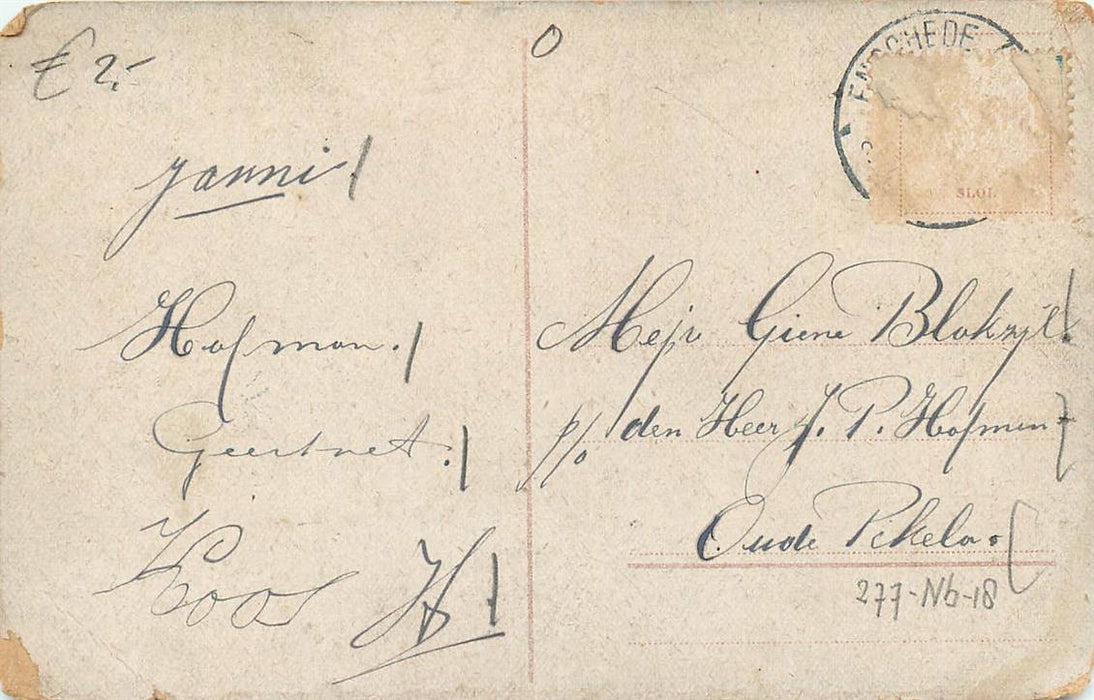 € 2,-
O
ENSCHEDE
Janni
Hofman.
Geertret.
Koos H
Mejv Giene Blokzijl.
p/o den Heer J. P. Hofman
Oude Pekela.
277-Nb-18